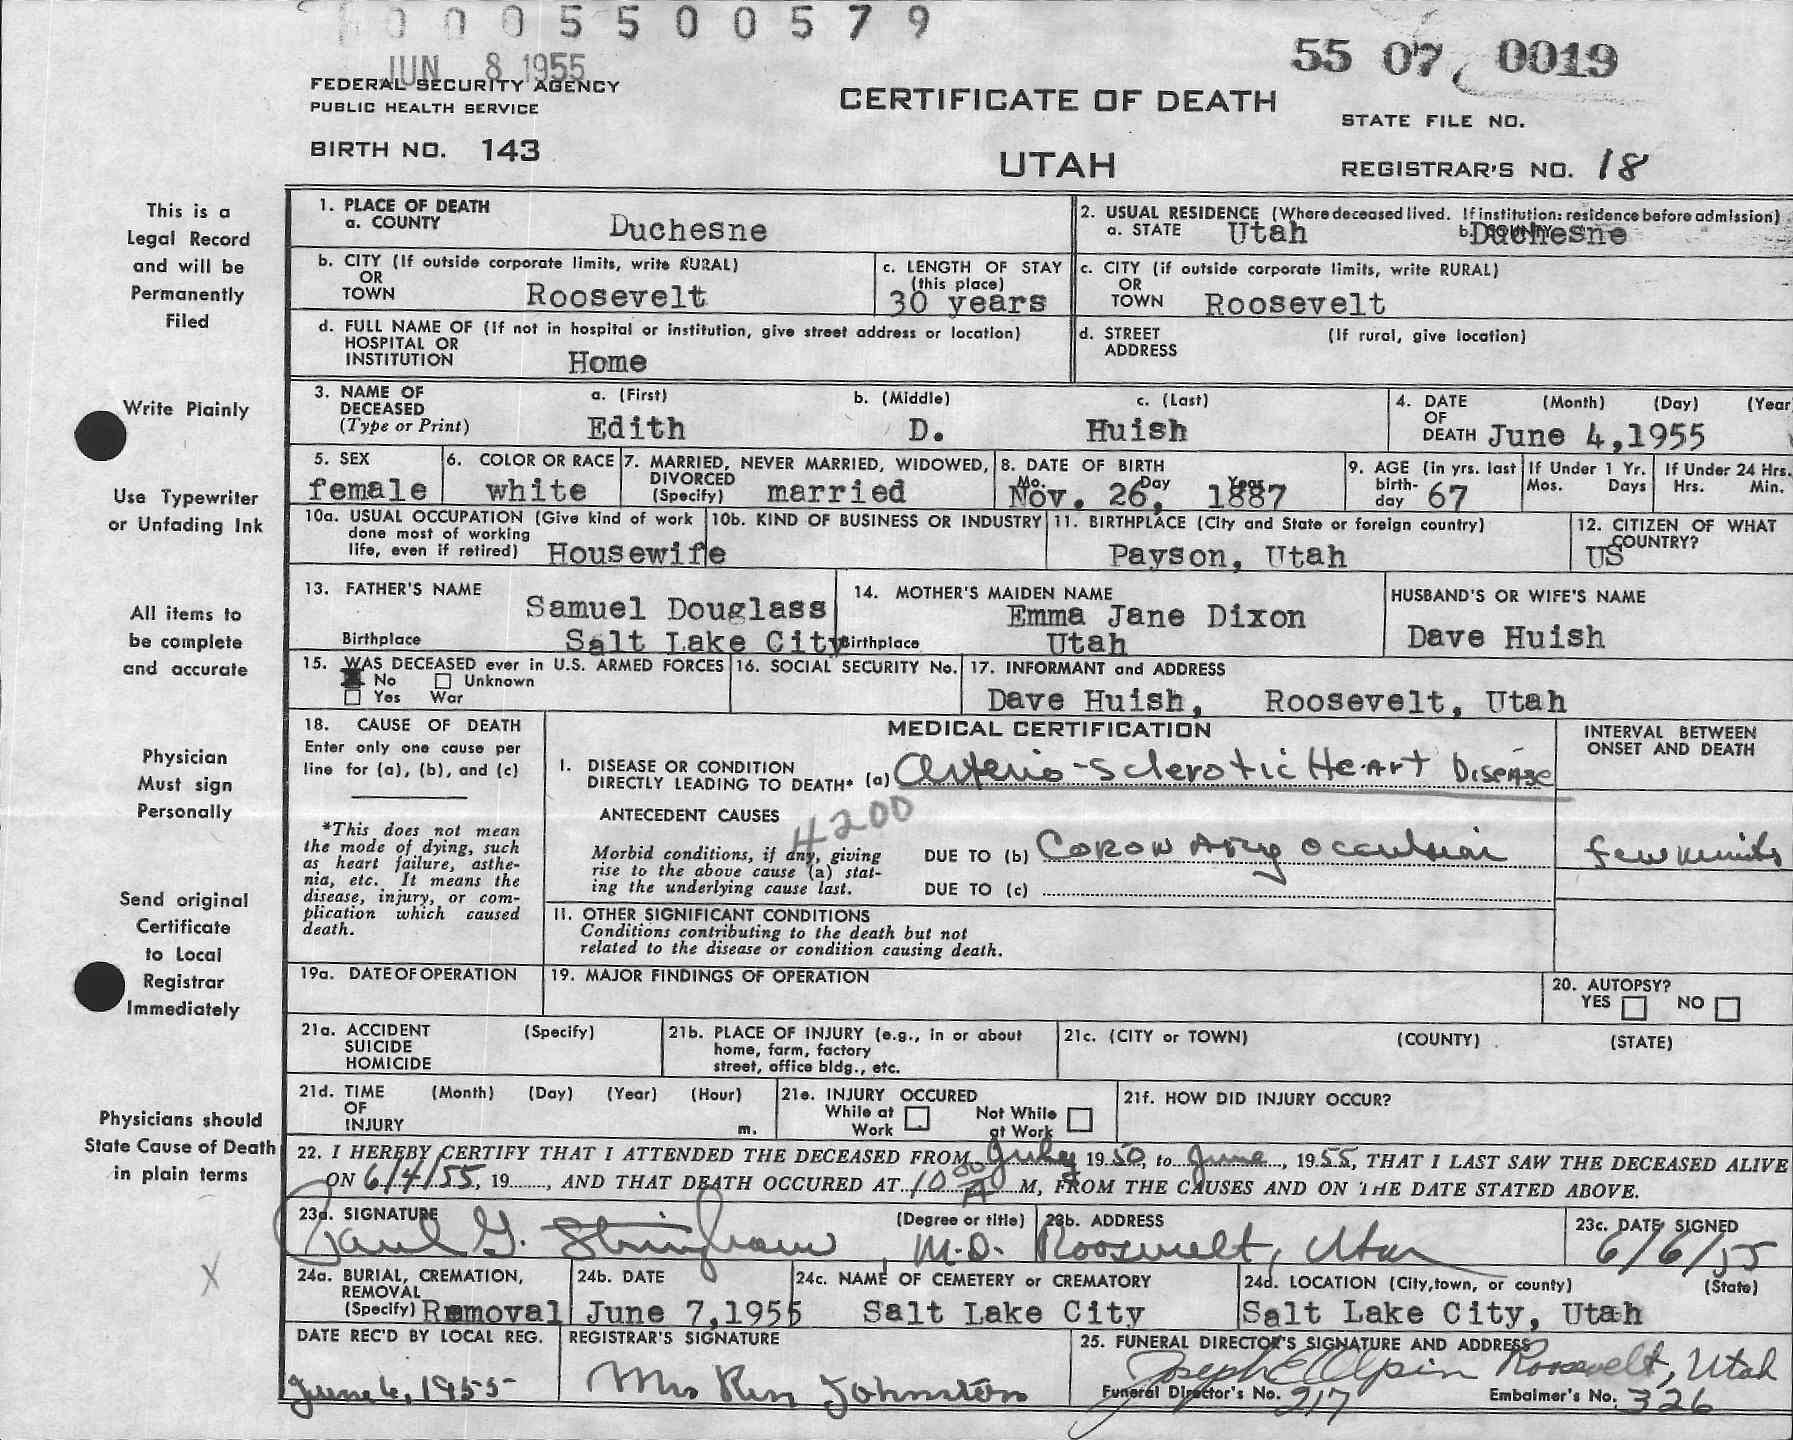 0005500579
JUN 8 1955
55 07 0019
FEDERAL SECURITY AGENCY
PUBLIC HEALTH SERVICE
CERTIFICATE OF DEATH
STATE FILE NO.
BIRTH NO. 143
UTAH
REGISTRAR'S NO. 18
This is a
Legal Record
and will be
Permanently
Filed
Write Plainly
Use Typewriter
or Unfading Ink
All items to
be complete
and accurate
Physician
Must sign
Personally
Send original
Certificate
to Local
Registrar
Immediately
Physicians should
State Cause of Death
in plain terms
1. PLACE OF DEATH
a. COUNTY Duchesne
2. USUAL RESIDENCE (Where deceased lived. If institution: residence before admission)
a. STATE Utah b. COUNTY Duchesne
b. CITY (If outside corporate limits, write RURAL)
OR
TOWN Roosevelt
c. LENGTH OF STAY
(this place)
30 years
c. CITY (if outside corporate limits, write RURAL)
OR
TOWN Roosevelt
d. FULL NAME OF (If not in hospital or institution, give street address or location)
HOSPITAL OR
INSTITUTION Home
d. STREET (If rural, give location)
ADDRESS
3. NAME OF
DECEASED
(Type or Print)
a. (First) b. (Middle) c. (Last)
Edith D. Huish
4. DATE (Month) (Day) (Year
OF
DEATH June 4,1955
5. SEX
female
6. COLOR OR RACE
white
7. MARRIED, NEVER MARRIED, WIDOWED,
DIVORCED
(Specify) married
8. DATE OF BIRTH
Mo. Day Year
Nov. 26, 1887
9. AGE (in yrs. last
birth-
day 67
If Under 1 Yr.
Mos. Days
If Under 24 Hrs.
Hrs. Min.
10a. USUAL OCCUPATION (Give kind of work
done most of working
life, even if retired) Housewife
10b. KIND OF BUSINESS OR INDUSTRY
11. BIRTHPLACE (City and State or foreign country)
Payson, Utah
12. CITIZEN OF WHAT
COUNTRY?
US
13. FATHER'S NAME
Samuel Douglass
Birthplace Salt Lake City
14. MOTHER'S MAIDEN NAME
Emma Jane Dixon
Birthplace Utah
HUSBAND'S OR WIFE'S NAME
Dave Huish
15. WAS DECEASED ever in U.S. ARMED FORCES
No Unknown
Yes War
16. SOCIAL SECURITY No.
17. INFORMANT and ADDRESS
Dave Huish, Roosevelt, Utah
18. CAUSE OF DEATH
Enter only one cause per
line for (a), (b), and (c)
*This does not mean
the mode of dying, such
as heart failure, asthe-
nia, etc. It means the
disease, injury, or com-
plication which caused
death.
MEDICAL CERTIFICATION
INTERVAL BETWEEN
ONSET AND DEATH
I. DISEASE OR CONDITION
DIRECTLY LEADING TO DEATH* (a) Arterio-sclerotic Heart Disease
ANTECEDENT CAUSES
4200
Morbid conditions, if any, giving
rise to the above cause (a) stat-
ing the underlying cause last.
DUE TO (b) Coronary occulsion few minits
DUE TO (c)
II. OTHER SIGNIFICANT CONDITIONS
Conditions contributing to the death but not
related to the disease or condition causing death.
19a. DATE OF OPERATION
19. MAJOR FINDINGS OF OPERATION
20. AUTOPSY?
YES NO
21a. ACCIDENT (Specify)
SUICIDE
HOMICIDE
21b. PLACE OF INJURY (e.g., in or about
home, farm, factory
street, office bldg., etc.
21c. (CITY or TOWN) (COUNTY) (STATE)
21d. TIME (Month) (Day) (Year) (Hour)
OF
INJURY m.
21e. INJURY OCCURED
While at Not While
Work at Work
21f. HOW DID INJURY OCCUR?
22. I HEREBY CERTIFY THAT I ATTENDED THE DECEASED FROM July 1950, to June, 1955, THAT I LAST SAW THE DECEASED ALIVE
ON 6/4/55, 19......, AND THAT DEATH OCCURED AT 10 00 A M, FROM THE CAUSES AND ON THE DATE STATED ABOVE.
23a. SIGNATURE (Degree or title)
Paul G. Stringham M.D.
23b. ADDRESS
Roosevelt, Utah
23c. DATE SIGNED
6/6/55
X
24a. BURIAL, CREMATION,
REMOVAL
(Specify) Removal
24b. DATE
June 7,1955
24c. NAME OF CEMETERY or CREMATORY
Salt Lake City
24d. LOCATION (City,town, or county) (State)
Salt Lake City, Utah
DATE REC'D BY LOCAL REG.
June 6, 1955
REGISTRAR'S SIGNATURE
Mrs Johnston
25. FUNERAL DIRECTOR'S SIGNATURE AND ADDRESS
Joseph E Olpin Roosevelt, Utah
Funeral Director's No. 217 Embalmer's No. 326